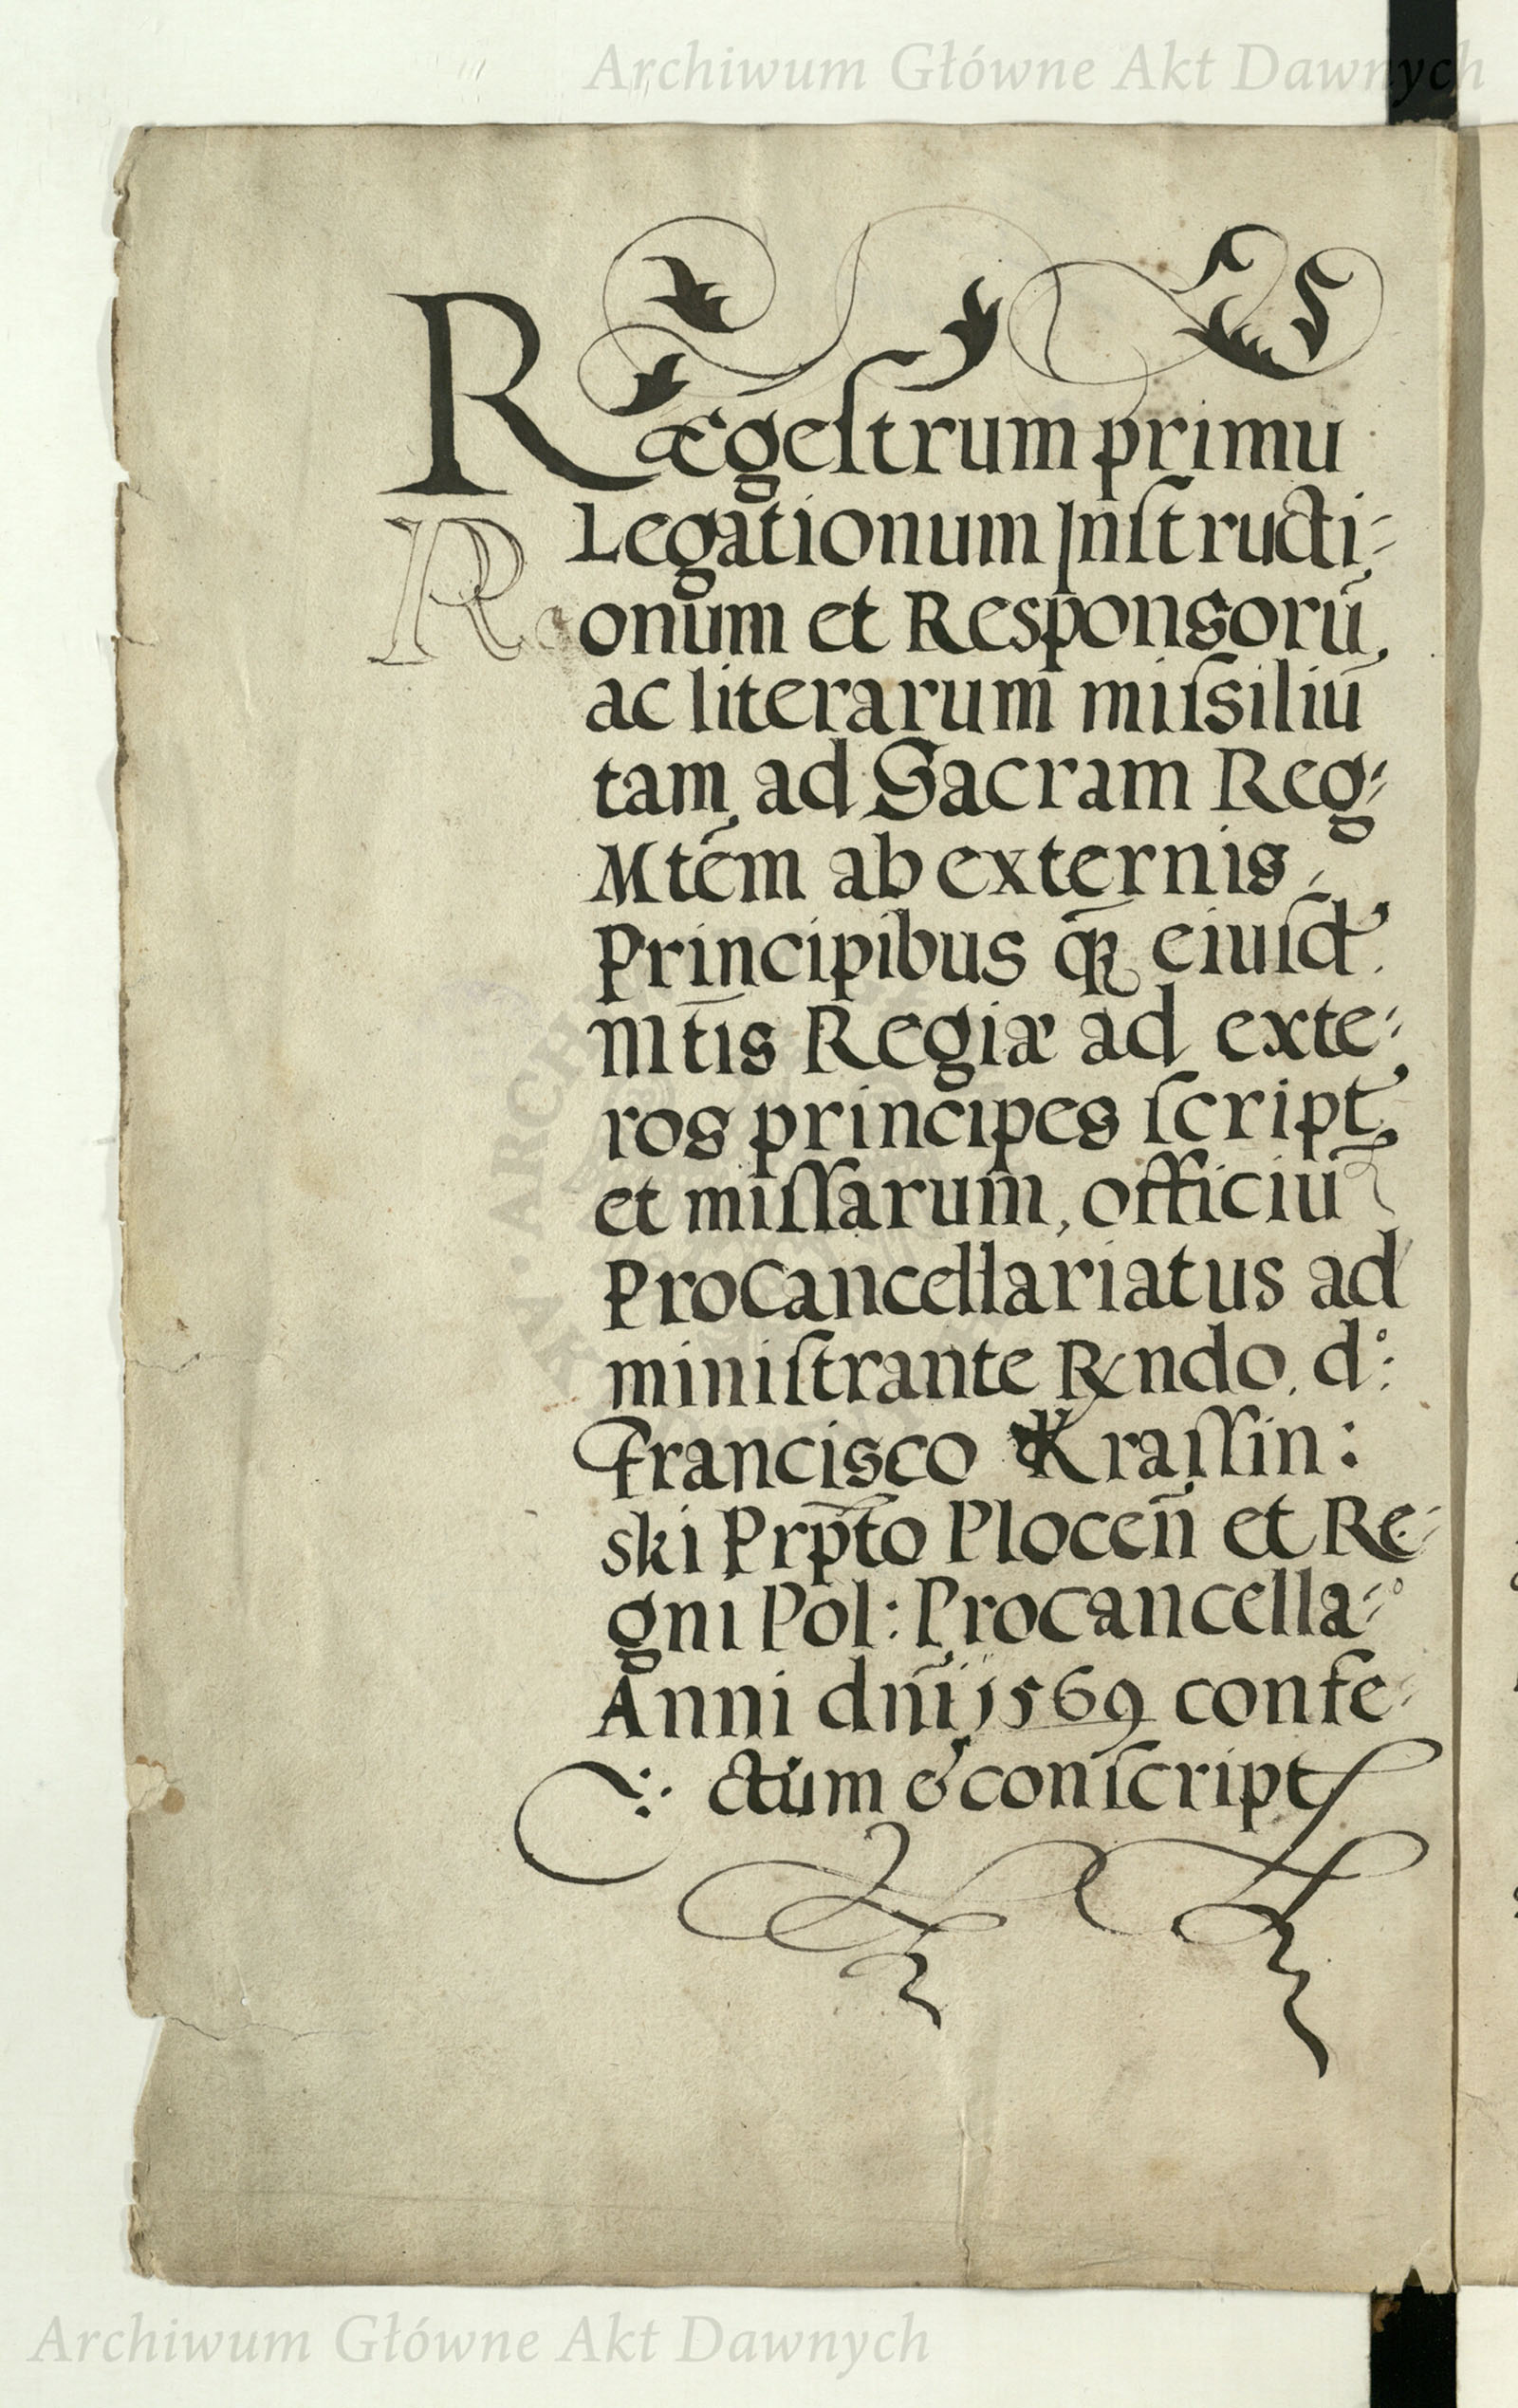 Archiwum Główne Akt Dawnych
Rægeſtrum primu
Legationum Inſtructi-
onum et Responsorū
ac literarum miſsiliū
tam ad Sacram Reg-
Mtēm ab externis
Principibus qꝫ eiuſd
Mt̄is Regiæ ad exte-
ros principes ſcript
et miſſarum, officiū
ProCancellariatus ad
miniſtrante Rndo. d°:
Francisco Kraſſin:
ski Prp̄to Plocen̄ et Re-
gni Pol: Procancella-
Anni dn̄i 1569 confe-
ctum & conſcript
Archiwum Główne Akt Dawnych